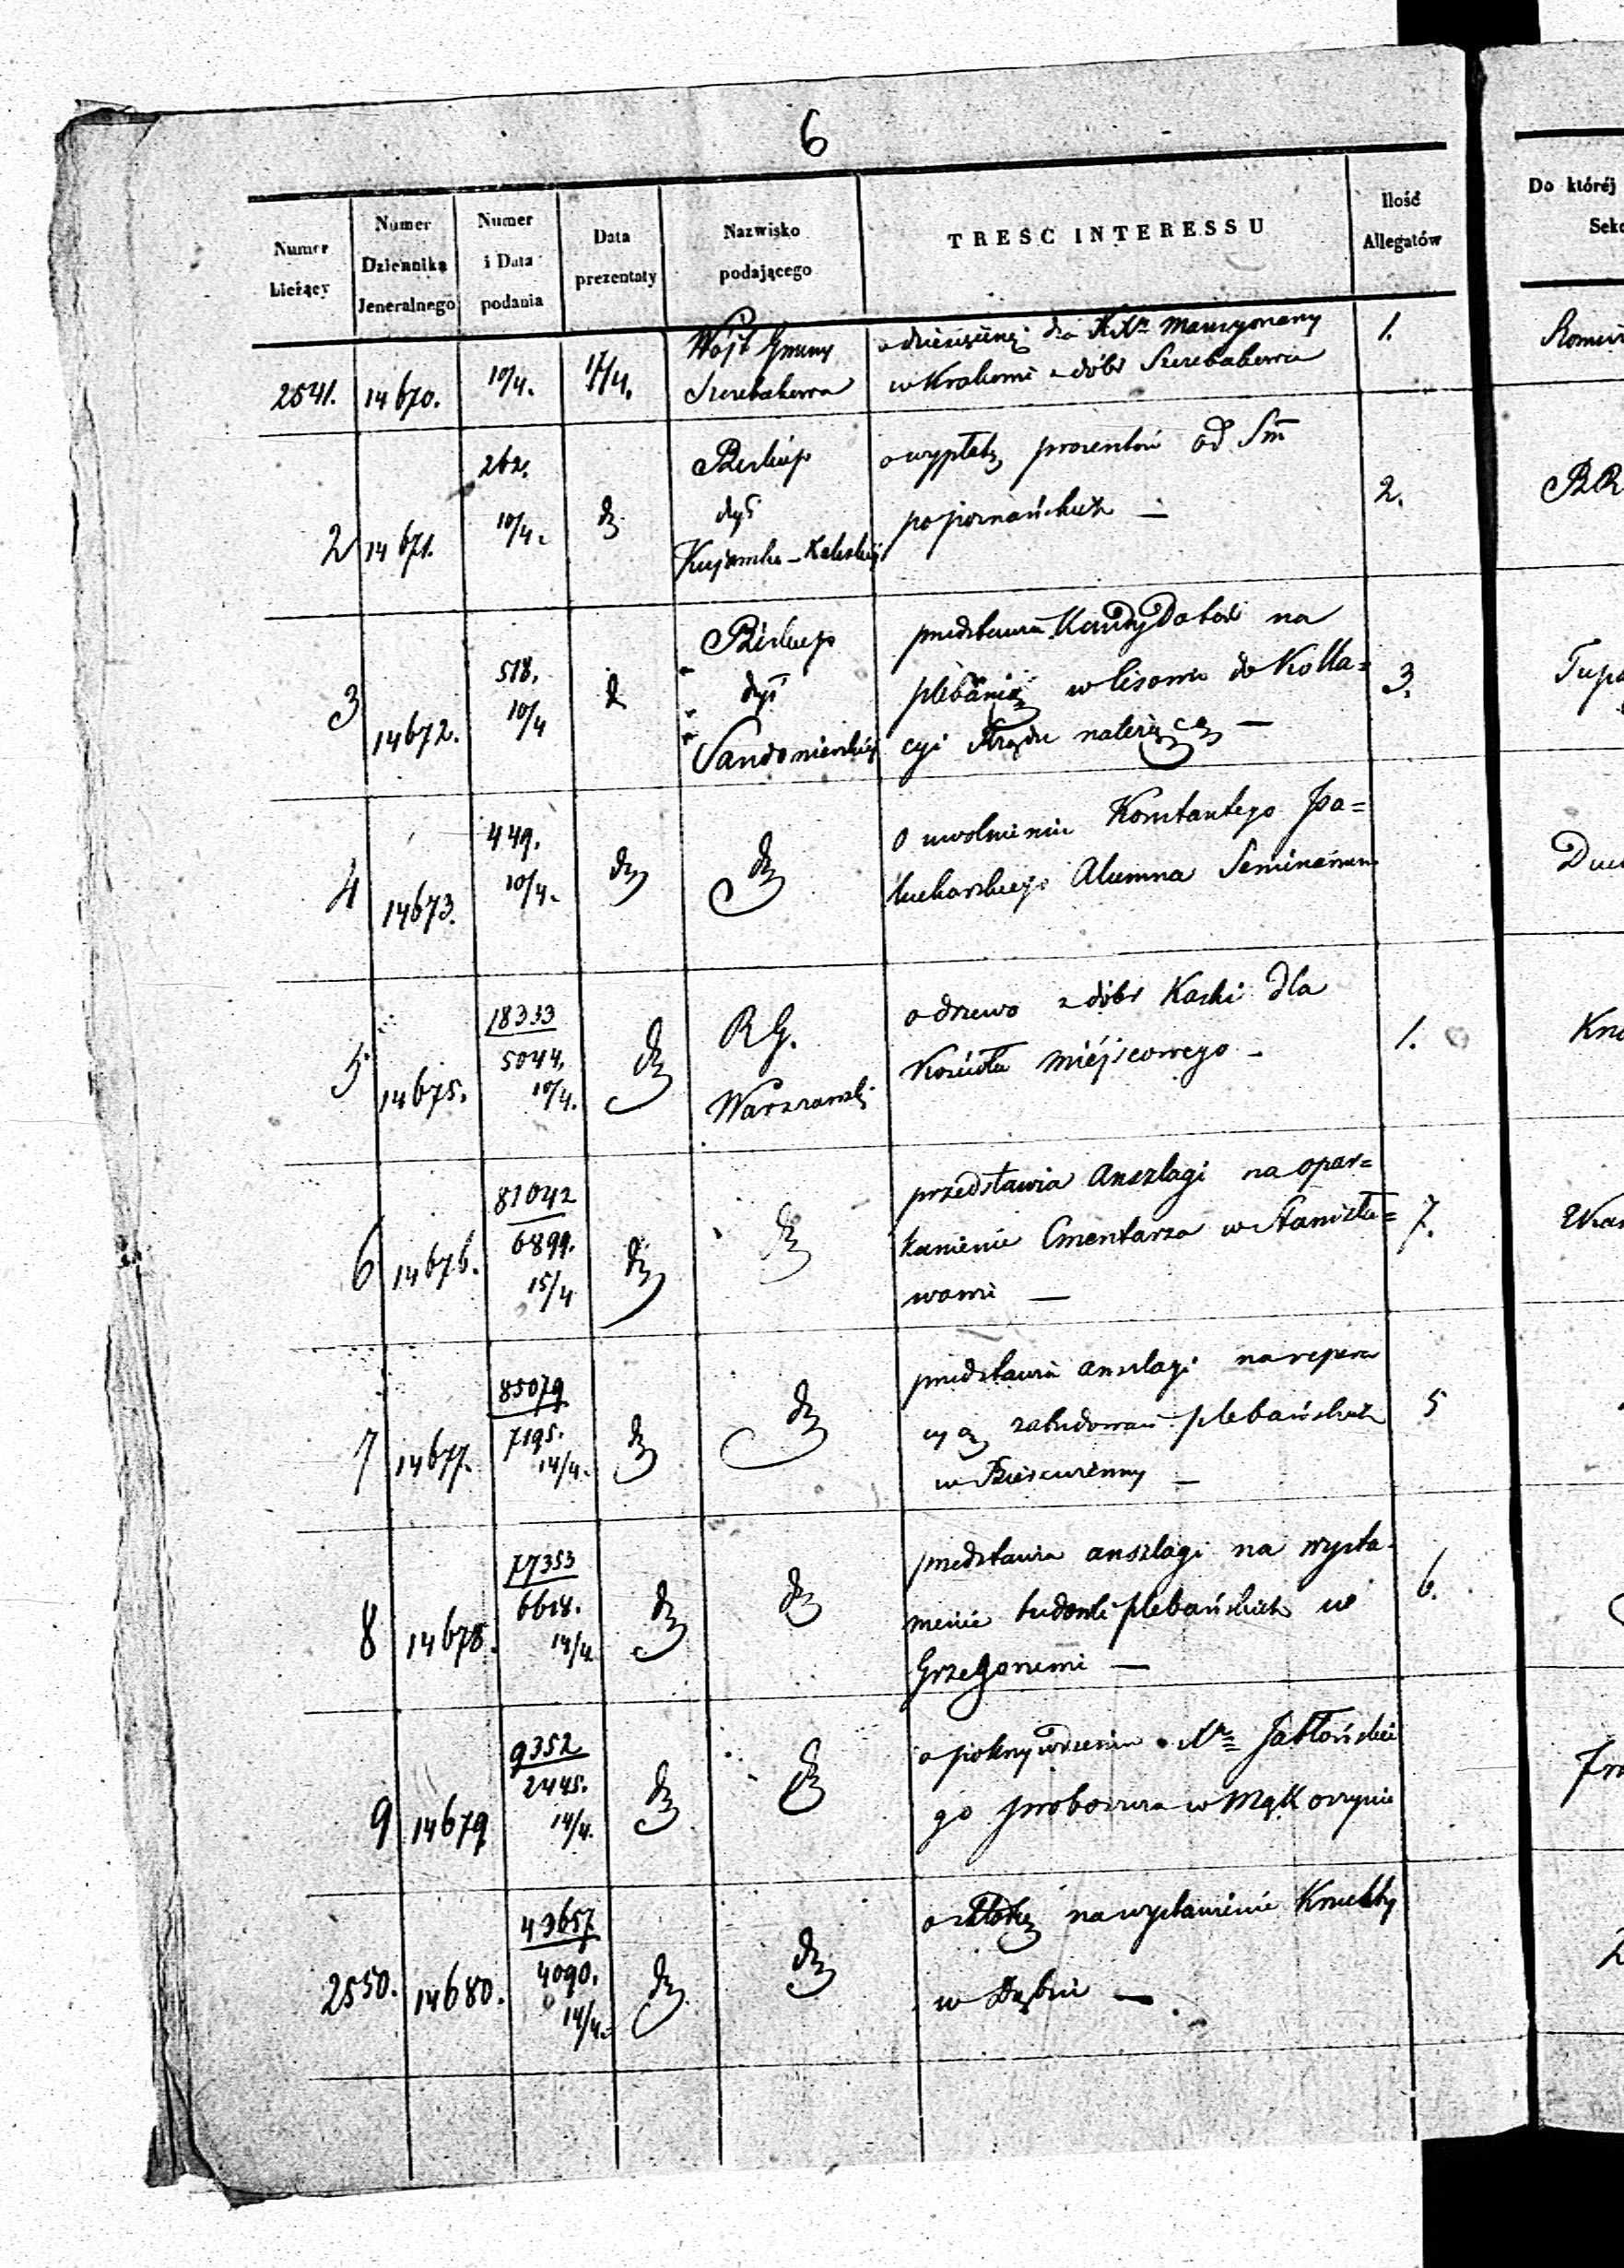 6
Numer bieżący
Numer Dziennika Jeneralnego
Numer i Data podania
Data prezentaty
Nazwisko podającego
TRESC INTERESSU
Ilość Allegatów
Do któréj
2541. 14670. 10/4. 17/4.
Wójt Gminy
o dziesięcinę dla Mansyonarzy 1.
w Krakowie z dóbr
2 14671. 262. 10/4.
Biskup
dyč
Kujawsko-Kaliskiej
o wypłatę procentów od Sm̃
popoznańskich — 2.
3 14672. 518. 10/4
Biskup
dyč
Sandomierskiej
przedstawia Kandydatów na
plebanią w Lisowie do Kolla=
cyi Rządu należącą — 3.
4 14673. 449. 10/4.
O uwolnieniu Konstantego
Alumna Seminarium
5 14675. 18333 5044. 10/4.
RG.
Warszawski
o drzewo z dóbr Kaski dla
Kościoła miejscowego - 1.
6 14676. 81042 6899. 15/4
przedstawia anszlagi na opar=
kanienie Cmentarza w Stanisła=
wowie — 7.
7 14677. 85079 7195. 14/4.
przedstawia anszlagi na repera
cyą zabudowań plebańskich
w — 5
8 14678. 77353 6618. 14/4
przedstawia anszlagi na wysta-
wienie budowli plebańskich w
Grzegorzewie — 6.
9 14679 9352 2445. 14/4.
o Jabłońskie
go proboszcza w Mąkoszynie
2550. 14680. 43657 4090. 14/4.
o składkę na wystawienie Kruchty
w Dąbiu —